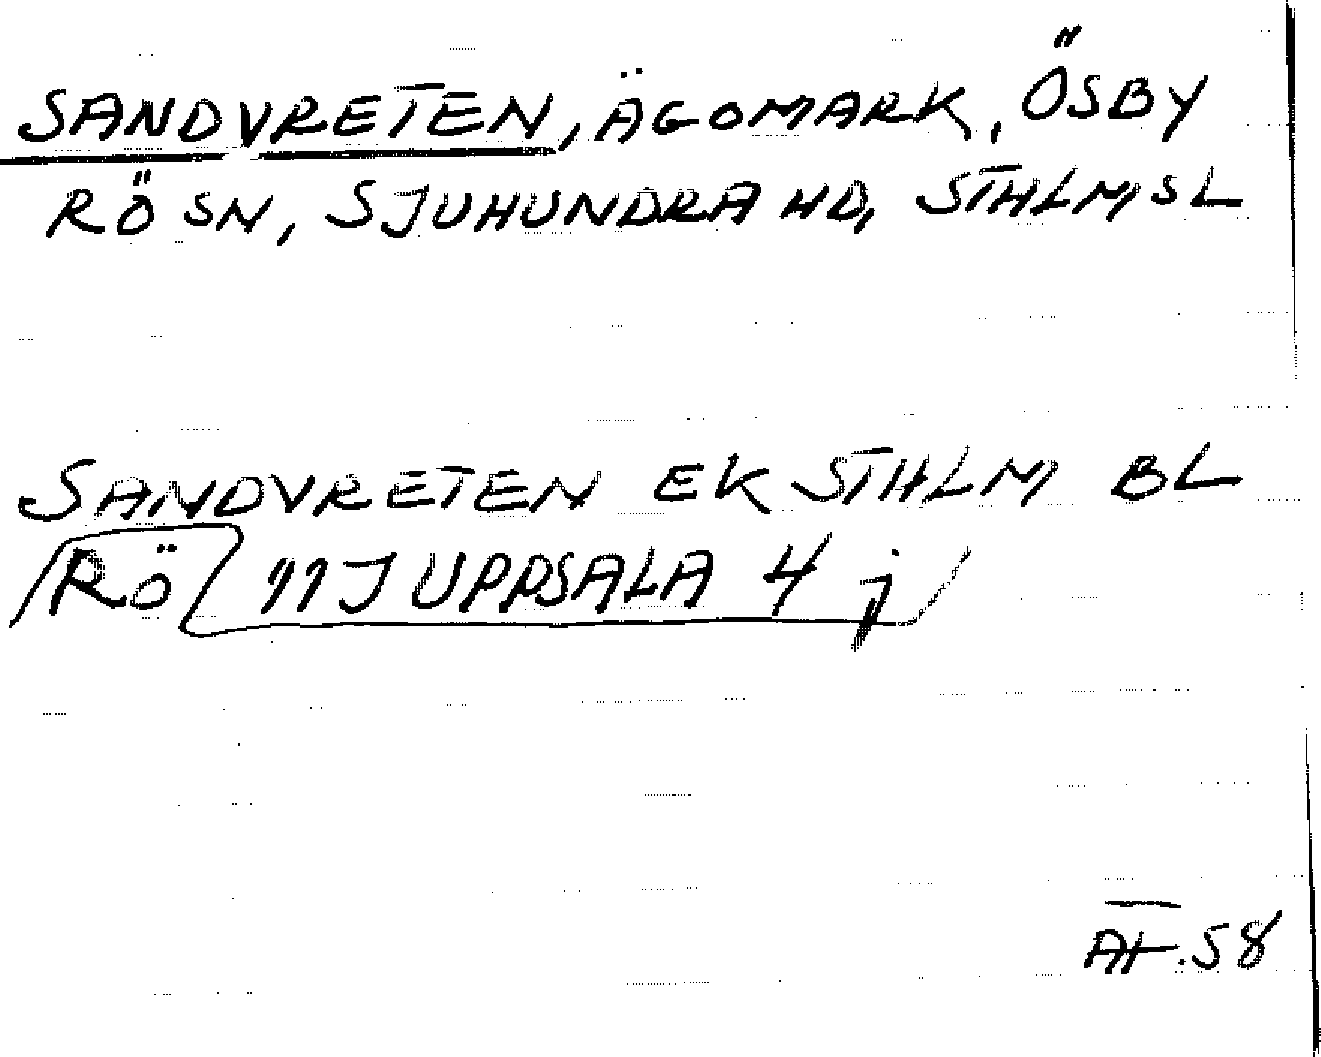 SANDVRETEN, ÄGOMARK, ÖSBY
RÖ SN, SJUHUNDRA HD, STHLMS L
SANDVRETEN EK STHLM BL
RÖ 11J UPPSALA 4 j
AF.58